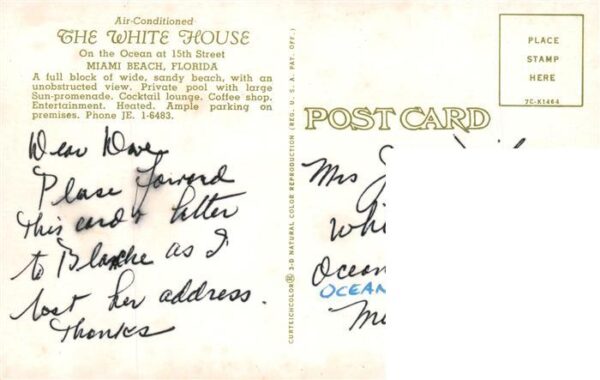 Air-Conditioned
THE WHITE HOUSE
On the Ocean at 15th Street
MIAMI BEACH, FLORIDA
A full block of wide, sandy beach, with an
unobstructed view. Private pool with large
Sun-promenade. Cocktail lounge. Coffee shop.
Entertainment. Heated. Ample parking on
premises. Phone JE. 1-6483.
Dear Dave
Please forward
This card & letter
to Blanche as I
lost her address.
Thanks
CURTEICHCOLOR® 3-D NATURAL COLOR REPRODUCTION (REG. U.S.A. PAT. OFF.)
POST CARD
PLACE
STAMP
HERE
7C-K1464
Mrs
Whi
Ocean
OCEAN